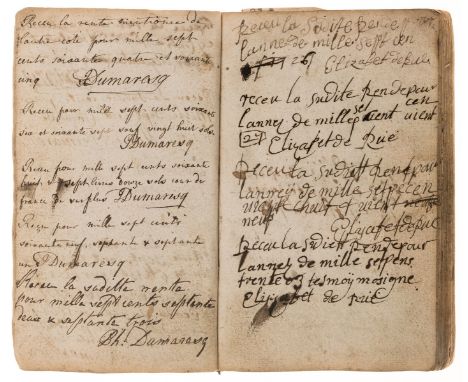 Receu la rente mentionée de
l'autre coté pour mille sept
cents soixante quatre et soixante
cinq Dumaresq
Receu pour mille sept cents soixante
six et soixante sept sauf vingt huit sols
PDumaresq
Receu pour mille sept cents soixante
huit & sept livres douze sols cours de
france de surplus PDumaresq
Reçeu pour mille sept cents
soixante neuf, septante & septante
un PDumaresq
Receu la suditte rente
pour mille sept cents septante
deux & septante trois
Ph: Dumaresq
receu la Suditte Rende pour
lannee de mille Sept cen
26 Elizabet de Rue
receu la sudite Rende pour
lannes de mille set cen
vient vient
27 Elizabet de Rue
receu la sudiett Rende pour
lanney de mille set cen
vient huit & vient neuf
neuf
Elizabet de Rue
receu la sudiett Rende pour
lanney de mille set sens
trente & tesmoy mosigne
Elizabet de Rue